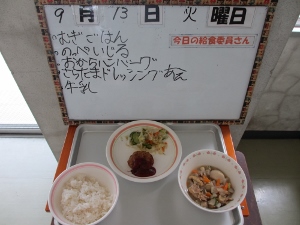 9月13日火曜日
今日の給食委員さん
むぎごはん
のっぺいじる
おからハンバーグ
さらたまドレッシングあえ
牛乳